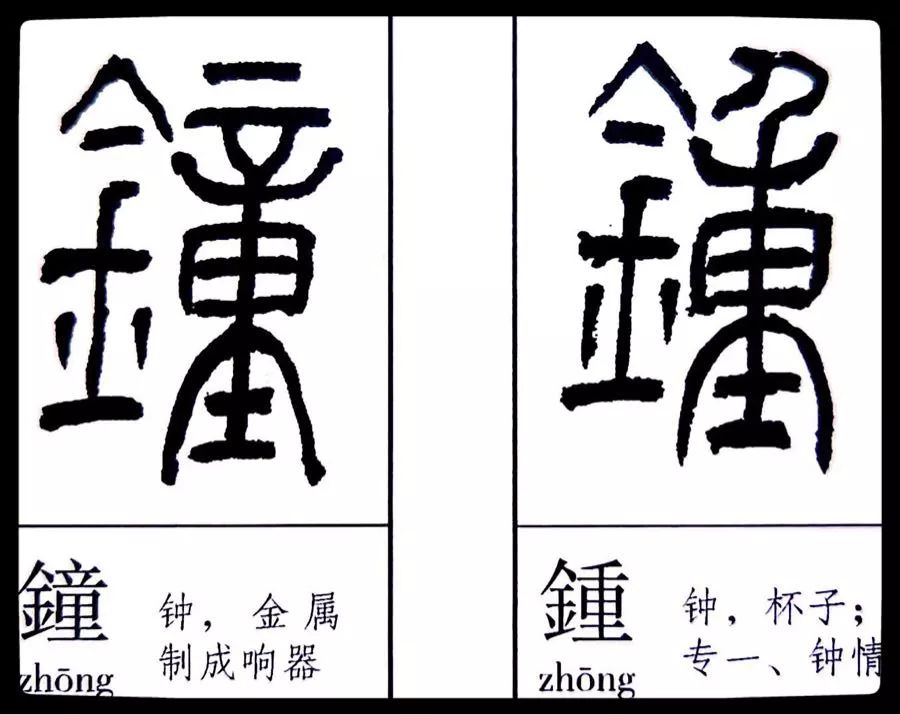 鐘
鍾
鐘
zhōng
钟，金属
制成响器
鍾
zhōng
钟，杯子；
专一、钟情